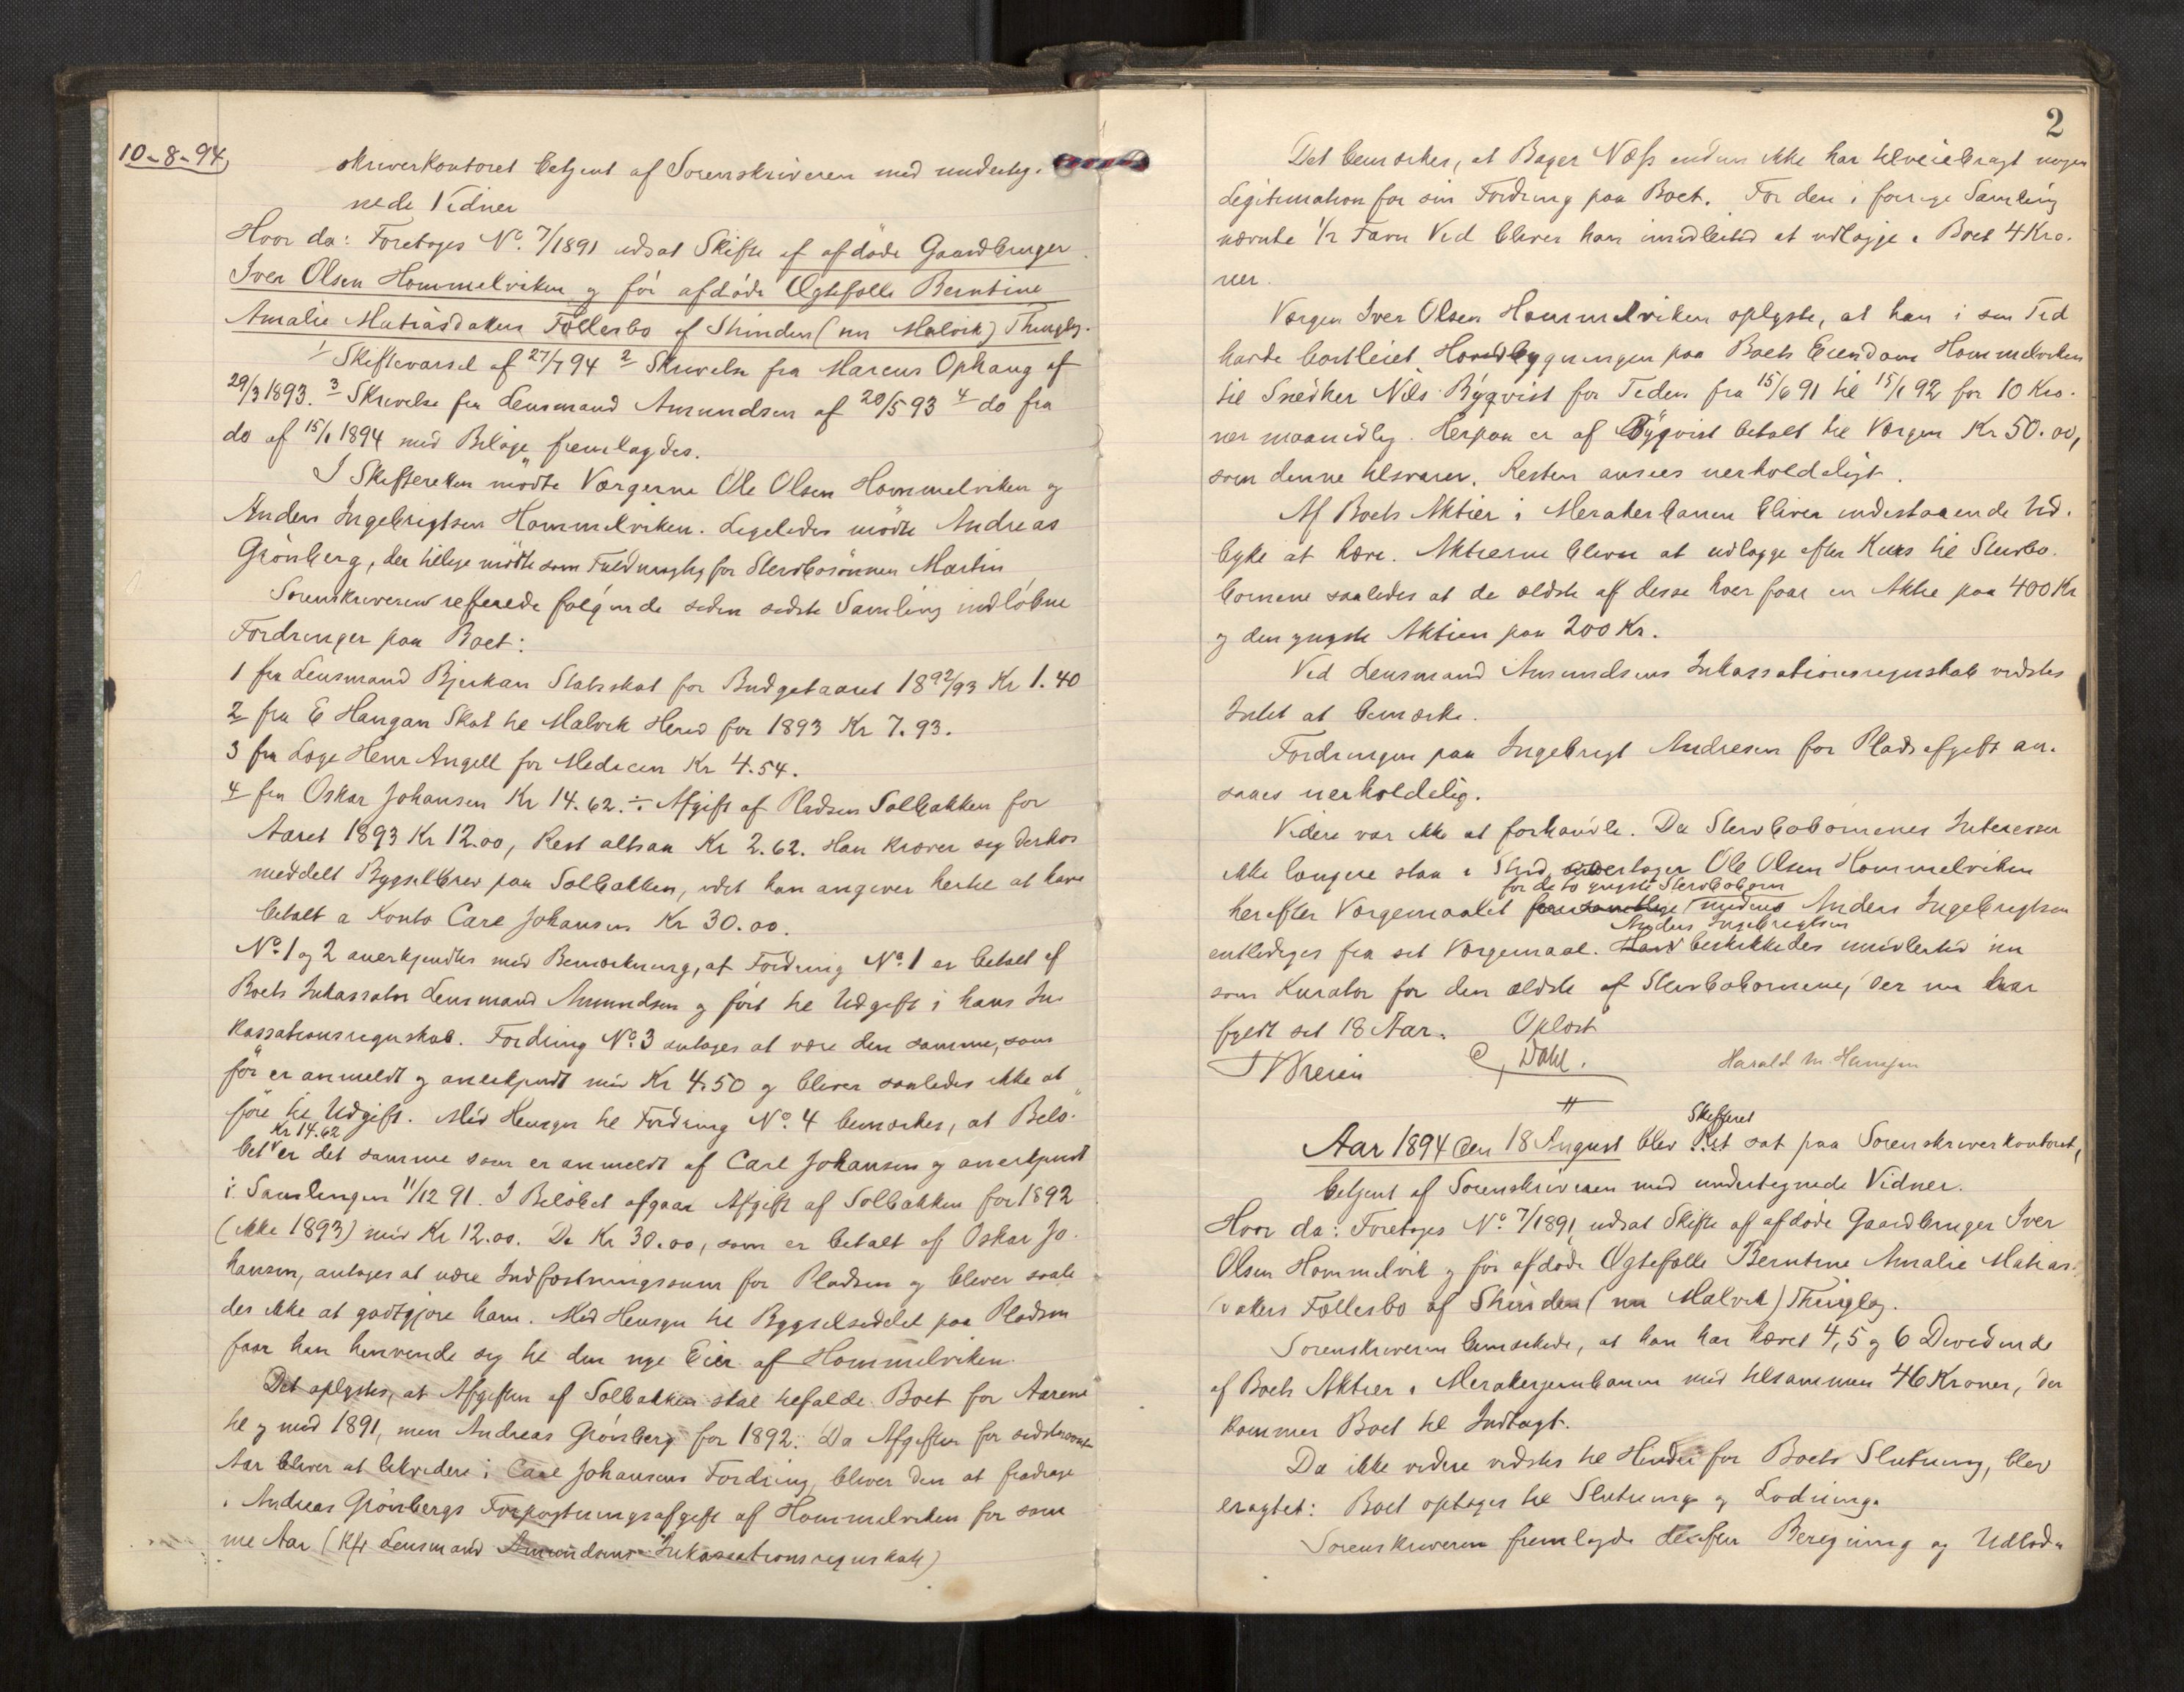 10-8-94,
skriverkontoret betjent af Sorenskriveren med underteg-
nede Vidner
Hvor da: Foretoges No. 7/1891 udsat Skifte ef afdöde Gaardbruger
Iver Olsen Hommelviken og för afdöde Ægtefelle Berntine
Amalie Matiasdatters Fællesbo af Strinden (nu Malvik) Thinglag.
1 Skiftevarsel af 27/7 94 2 Skrivelse fra Marcus Ophaug af
29/3 1893. 3 Skrivelse fra Lensmand Amundsen af 20/5 93 4 do fra
do af 15/1 1894 med Bilage fremlagdes.
I Skifteretten mödte Værgerne Ole Olsen Hommelviken og
Anders Ingebrigtsen Hommelviken. Ligeledes mödte Andreas
Grönberg, der tillige mödte som Fuldmægtig for Stervbosönnen Martin
Sorenskriveren refferede fölgende siden sidste Samling indlöbne
Fordringer paa Boet:
1 fra Lensmand Bjerkan Statsskat for Budgetaaret 1892/93 Kr 1.40
2 fra E Haugan Skat til Malvik Hered for 1893 Kr 7.93.
3 fra Læge Henr Angell for Medicin Kr 4.54.
4 fra Oskar Johansen Kr 14.62. ÷ Afgift af Pladsen Solbakken for
Aaret 1893 Kr 12.00, Rest altsaa Kr 2.62. Han kræver sig derhos
meddelt Bygselbrev paa Solbakken, idet han angiver hertil at have
betalt a Konto Carl Johansen Kr 30.00.
No. 1 og 2 anerkjendtes med Bemærkning, at Fordring No. 1 er betalt af
Boets Inkassator Lensmand Amundsen og fört til Udgift i hans In-
kassationsregnskab. Fordring No. 3 antages at være den samme, som
för er anmeldt og anerkjendt med Kr 4.50 og bliver saaledes ikke at
före til Udgift. Med Hensyn til Fordring No. 4 bemærkes, at Belö-
Kr 14.62
bet er det samme som er anmeldt af Carl Johansen og anerkjendt
i Samlingen 11/12 91. I Belöbet afgaar Afgift af Solbakken for 1892
(ikke 1893) med Kr 12.00. De Kr 30.00, som er betalt af Oskar Jo-
hansen, antages at være Indfæstningssum for Pladsen og bliver saale
des ikke at godtgjöre ham. Med Hensyn til Bygselseddel paa Pladsen
faar han henvende sig til den nye Eier af Hommelviken.
Det oplystes, at Afgiften af Solbakken skal tilfalde Boet for Aarene
til og med 1891, men Andreas Grönberg for 1892. Da Afgiften for sidstnævnte
Aar bliver at likvidere i Carl Johansens Fordring, bliver den at fradrage
i Andreas Grönbergs Forpagtningsafgift af Hommelviken for sam
me Aar (Kfr Lensmand Amundsens Inkassationsregnskab)
2
Det bemærkes, at Bager Næss endnu ikke har tilveiebragt nogen
Legitimation for sin Fordring paa Boet. For den i forrige Samling
nævnte 1/2 Favn Ved bliver ham imidlertid at udlægge i Boet 4 Kro-
ner.
Værgen Iver Olsen Hommelviken oplyste, at han i sin Tid
havde bortleiet Hovedbygningen paa Boets Eiendom Hommelviken
til Snedker Nils Byqvist for Tiden fra 15/6 91 til 15/1 92 for 10 Kro-
ner maanedlig. Herpaa er af Byqvist betalt til Værgen Kr 50.00,
som denne tilsvarer. Resten ansees uerholdeligt.
Af Boets Aktier i Merakerbanen bliver indestaaende Ud-
bytte at hæve. Aktierne bliver at udlægge efter Kurs til Stervbo-
börnene saaledes at de ældste af desse hver faar en Aktie paa 400 Kr
og den yngste Aktien paa 200 Kr.
Ved Lensmand Amundsens Inkassationsregnskab vidstes
Intet at bemærke.
Fordringen paa Ingebrigt Andresen for Pladsafgift an-
saaes uerholdelig.
Videre var ikke at forhandle. Da Stervbobörnenes Interesser
ikke længere staa i Strid, overtager Ole Olsen Hommelviken
for de to yngste Stervbobörn
herefter Værgemaalet for samtlige medens Anders Ingebrigtsen
Anders Ingebrigtsen
entlediges fra sit Værgemaal. Han beskikkedes imidlertid nu
som Kurator for den ældste af Stervbobörnene, der nu har
fyldt sit 18 Aar. Oplöst
C, Dahl. Harald M Hansen
#
Skifteret
Aar 1894 den 18 August blev Ret sat paa Sorenskriverkontoret,
betjent af Sorenskriveren med undertegnede Vidner.
Hvor da: Foretoges No. 7/1891 udsat Skifte af afdöde Gaardbruger Iver
Olsen Hommelvik og för afdöde Ægtefelle Berntine Amalie Matias-
datters Fællesbo af Strinden (nu Malvik) Thinglag.
Sorenskriveren bemærkede, at han har hævet 4, 5 og 6 Dividende
af Boets Aktier i Merakerjernbanen med tilsammen 46 Kroner, der
kommer Boet til Indtægt.
Da ikke videre vidstes til Hinder for Boets Slutning, blev
eragtet: Boet optages til Slutning og Lodning.
Sorenskriveren fremlagde derefter Beregning og Udlod-